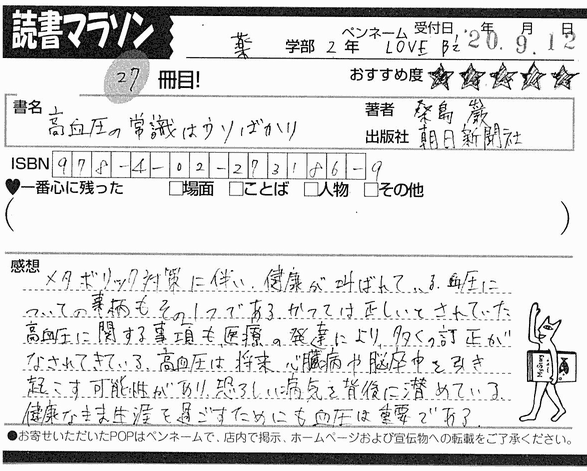 読書マラソン
薬 学部 2 年 ペンネーム LOVE B'z 受付日 '20.年9.月12日
27 冊目! おすすめ度 ★★★★★
書名 高血圧の常識はウソばかり
著者 桑島 巌
出版社 朝日新聞社
ISBN 978-4-02-273186-9
♥一番心に残った □場面 □ことば □人物 □その他
( )
感想
メタボリック対策に伴い、健康が叫ばれている。血圧に
ついての事柄もその1つである。かつては正しいとされていた
高血圧に関する事項も医療の発達により、多くの訂正が
なされてきている。高血圧は将来、心臓病や脳卒中を引き
起こす可能性があり、恐ろしい病気を背後に潜めている。
健康なまま生涯を過ごすためにも血圧は重要である。
●お寄せいただいたPOPはペンネームで、店内で掲示、ホームページおよび宣伝物への転載をご了承ください。